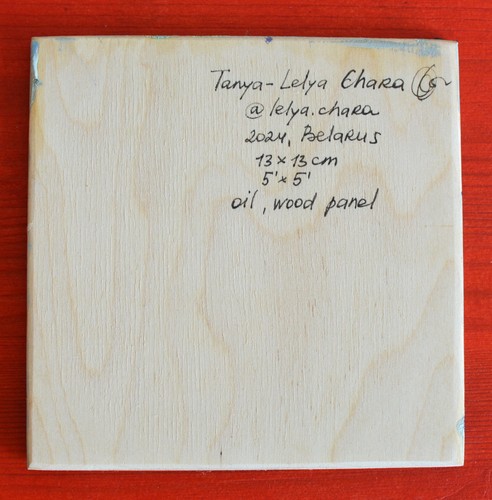 Tanya-Lelya Chara
@lelya.chara
2024, Belarus
13×13 cm
5'×5'
oil, wood panel